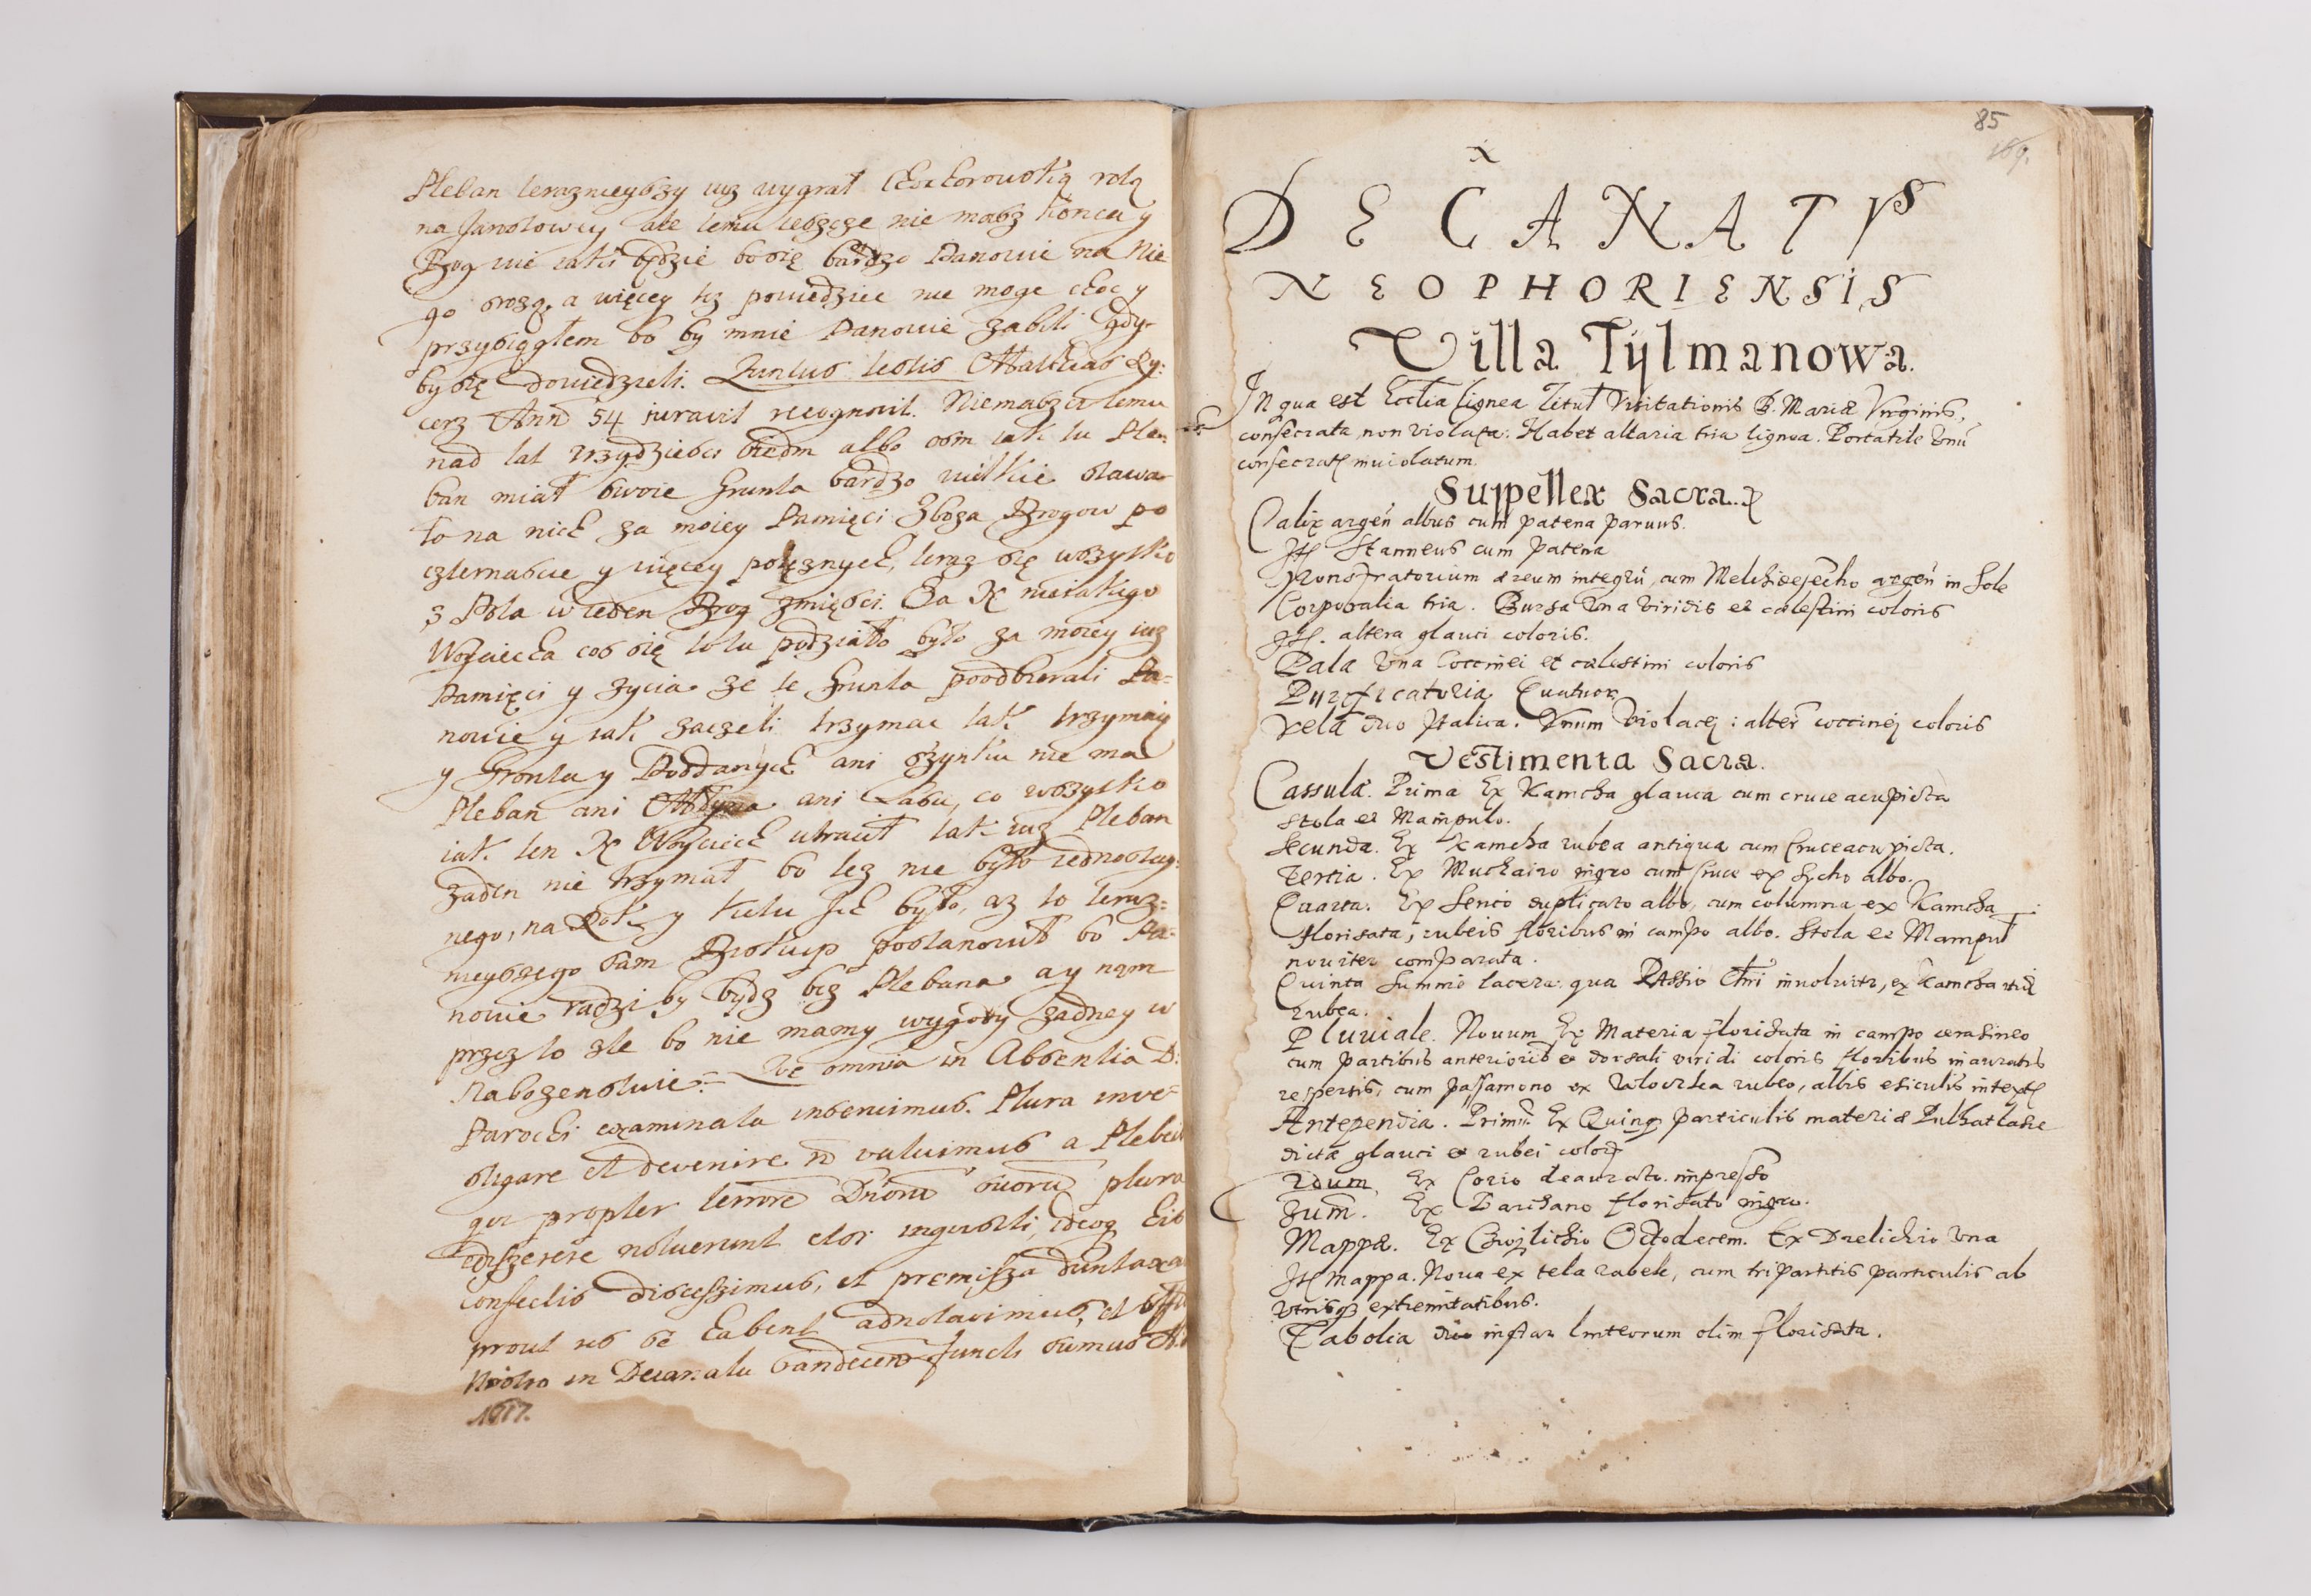 Pleban teraznieyszy iuz wygrał rolą
na Janolowey ale temu ieszcze nie masz konca y
Bog wie iaki będzie bo się bardzo Panowie na Nie
go srozą, a więcey tez powiedziec nie moge choc y
przysiągłem bo by mnie Panowie zabili gdy-
by się dowiedzieli. Quintus testis Matthias Ry:
cerz Ann 54 iuravit recognovit. Niemasz iu temu
nad lat trzydziesci siedm albo osm iak tu Ple-
ban miał swoie Grunta bardzo wielkie stawa
ło na nich za moiey Pamięci Zboza Brogow po
czternascie y więcey potęznych, teraz się wszytko
z Pola w ieden Brog zmiesci. Za X nieiakiego
Woyciecha cos się to tu podziało było za moiey iuz
Pamięci y zycia ze te Grunta poodbierali Pa-
nowie y iak zaczeli trzymac tak trzymaią
y Gronta y Poddanych ani szynku nie ma
Pleban ani Młyna ani Lasu, co wszytko
iak ten X Woyciech utracił tak iuz Pleban
zaden nie trzymał bo tez nie było iednostay:
nego, na Rok y kilku Ich było, az to teraz=
nieyszego sam Biskup postanowił bo Pa-
nowie radzi by bydz bez Plebana ay nam
przez to zle bo nie mamy wygody zadney w
Nabozenstwie. Hæc omnia in Absentia D.
Parochi examinata invenimus. Plura inve-
stigare et devenire n valuimus a Plebeis
qui propter terrore Dnoru suoru plura
disserere noluerunt etsi inquisiti, ideoq his
confectis discessimus, et premissa duntaxat
prout res se habent adnotavimus, et offo
Nostro in Decanatu Sandecen functi sumus A.
1617.
85
169.
DECANATVS
NEOPHORIENSIS
Villa Tylmanowa.
In qua est Ecctia lignea Titut Visitationis B. Mariæ Virginis,
consecrata non violata. Habet altaria tria lignea. Portatile Vnu
consecrat inviolatum.
Suppellex Sacra.
Calix argen albus cum patena paruus.
Jt Stanneus cum patena
Monstratorium æreum integru, cum Melchisedecho argen in Sole
Corporalia tria. Bursa Vna Viridis et cælestini coloris
Jt. altera glauci coloris.
Pala Vna Coccinei et cælestini coloris
Purificatoria Quatuor
Vela duo Italica. Vnum Violacej: alter coccinej coloris
Vestimenta Sacra.
Cassulæ. Prima Ex Kamcha glauca cum cruce acupicta
stola et Manipulo.
Secunda. Ex Kamcha rubea antiqua cum Cruce acupicta.
Tertia. Ex Muchairo nigro cum Cruce ex Sycho albo.
Quarta. Ex Serico duplicato albo, cum columna ex Kamcha
florisata, rubeis floribus in campo albo. Stola et Manipul
noviter comparata.
Quinta Summe lacera. qua Passio Chri involvitr, ex Kamcha
rubea.
Pluviale. Nouum Ex Materia florisata in campo cerasineo
cum partibus anteriorib et dorsali viridi coloris floribus inauratis
respersis, cum passamono ex rubeo, albis esiculis intext
Antependia. Primu. Ex Quinq particulis materiæ
dicta glauci et rubei color
2dum Ex Corio deaurato impresso
3um. Ex Barchano florisato nigro.
Mappæ. Ex Cwylichio Octodecem. Ex Drelichio Vna
Jt mappa. Noua ex tela rabek, cum tripartitis particulis ab
vtrisq extremitatibus.
Tabolia duo instar linteorum olim florisata.